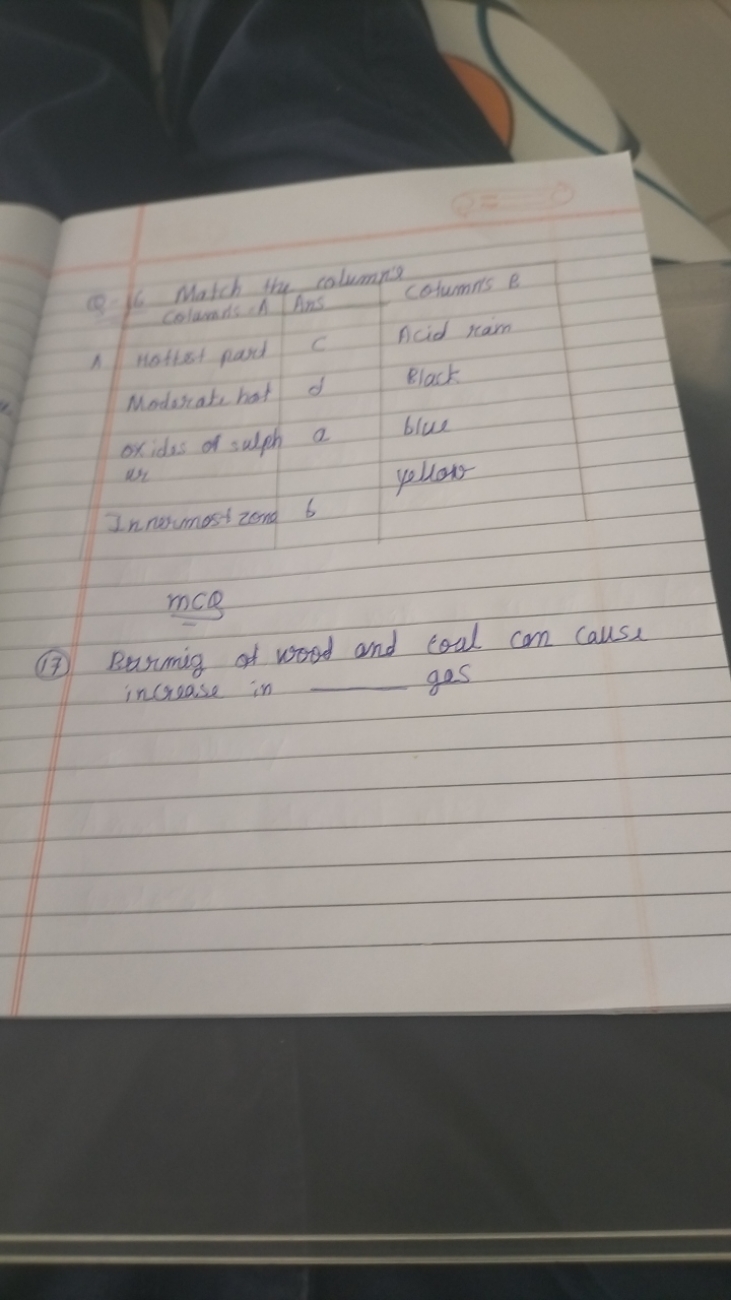 Q-16 Match the column's
Colamds-A Ans Column's B
A Hottest part c Acid rain
Moderate hot d Black
oxides of sulph a blue
ur yellow
Innermost zone b
MCQ
17 Burnmig of wood and coal can cause
increase in ______ gas